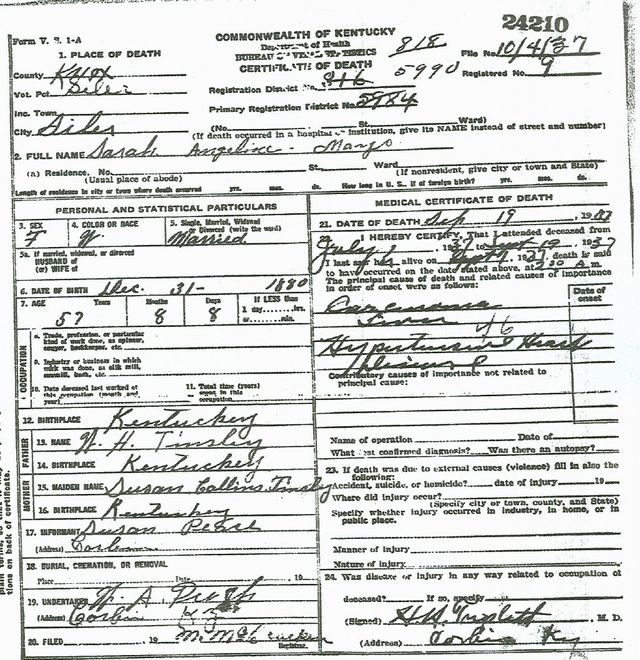 24210
Form V. S. 1-A
COMMONWEALTH OF KENTUCKY
Department of Health
BUREAU OF VITAL STATISTICS
CERTIFICATE OF DEATH
818
5990
File No. 10/4/37
Registered No. 9
1. PLACE OF DEATH
County Knox
Vot. Pct. Siler
Inc. Town
City Siler
Registration District No. 816
Primary Registration District No. 5984
(No. St. Ward)
(If death occurred in a hospital or institution, give its NAME instead of street and number)
2. FULL NAME Sarah Angeline Mayo
(a) Residence. No. St. Ward
(Usual place of abode)
(If nonresident, give city or town and State)
Length of residence in city or town where death occurred yrs. mos. ds. How long in U. S., if of foreign birth? yrs. mos. ds.
PERSONAL AND STATISTICAL PARTICULARS
3. SEX
F
4. COLOR OR RACE
W
5. Single, Married, Widowed
or Divorced (write the word)
Married
5a. If married, widowed, or divorced
HUSBAND of
(or) WIFE of
6. DATE OF BIRTH Dec. 31- 1880
7. AGE Years Months Days
57 8 8
If LESS than
1 day hrs.
or min.
OCCUPATION
8. Trade, profession, or particular
kind of work done, as spinner,
sawyer, bookkeeper, etc.
9. Industry or business in which
work was done, as silk mill,
sawmill, bank, etc.
10. Date deceased last worked at
this occupation (month and
year)
11. Total time (years)
spent in this
occupation
12. BIRTHPLACE Kentuckey
FATHER
13. NAME W. H. Tinsley
14. BIRTHPLACE Kentuckey
MOTHER
15. MAIDEN NAME Susan Collins Tinsley
16. BIRTHPLACE Kentuckey
17. INFORMANT Susan
(Address) Corbin
18. BURIAL, CREMATION, OR REMOVAL
Place Date 19
19. UNDERTAKER W A
(Address) Corbin Ky
20. FILED 19
Registrar.
MEDICAL CERTIFICATE OF DEATH
21. DATE OF DEATH Sep 19, 1937
I HEREBY CERTIFY, That I attended deceased from
July 1 1937 to Sept 19, 1937
I last saw her alive on Sept 1937, death is said
to have occurred on the date stated above, at 2:00 A m.
The principal cause of death and related causes of importance
in order of onset were as follows:
Date of
onset
Carcinoma
Liver
46
Hypertensive Heart
Contributory causes of importance not related to
principal cause:
Name of operation Date of
What test confirmed diagnosis? Was there an autopsy?
23. If death was due to external causes (violence) fill in also the
following:
Accident, suicide, or homicide? date of injury 19
Where did injury occur?
(Specify city or town, county, and State)
Specify whether injury occurred in industry, in home, or in
public place.
Manner of injury
Nature of injury
24. Was disease or injury in any way related to occupation of
deceased? If so, specify
(Signed) M. D.
(Address) Corbin Ky
tions on back of certificate.